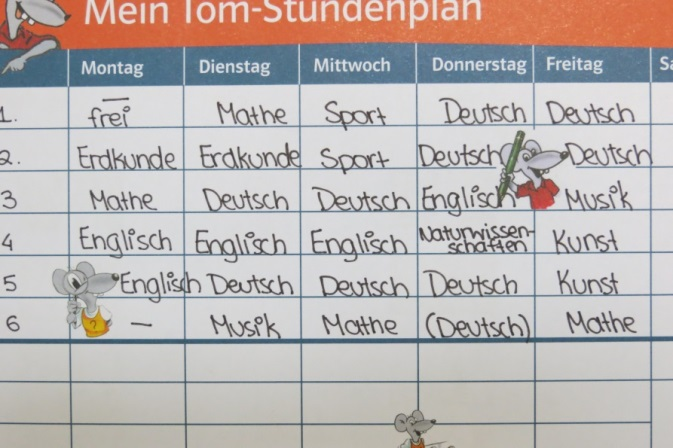 Mein Tom-Stundenplan
Montag Dienstag Mittwoch Donnerstag Freitag Sa
1. frei Mathe Sport Deutsch Deutsch
2. Erdkunde Erdkunde Sport Deutsch Deutsch
3 Mathe Deutsch Deutsch Englisch Musik
4 Englisch Englisch Englisch Naturwissen-
schaften Kunst
5 Englisch Deutsch Deutsch Deutsch Kunst
6 — Musik Mathe (Deutsch) Mathe
?